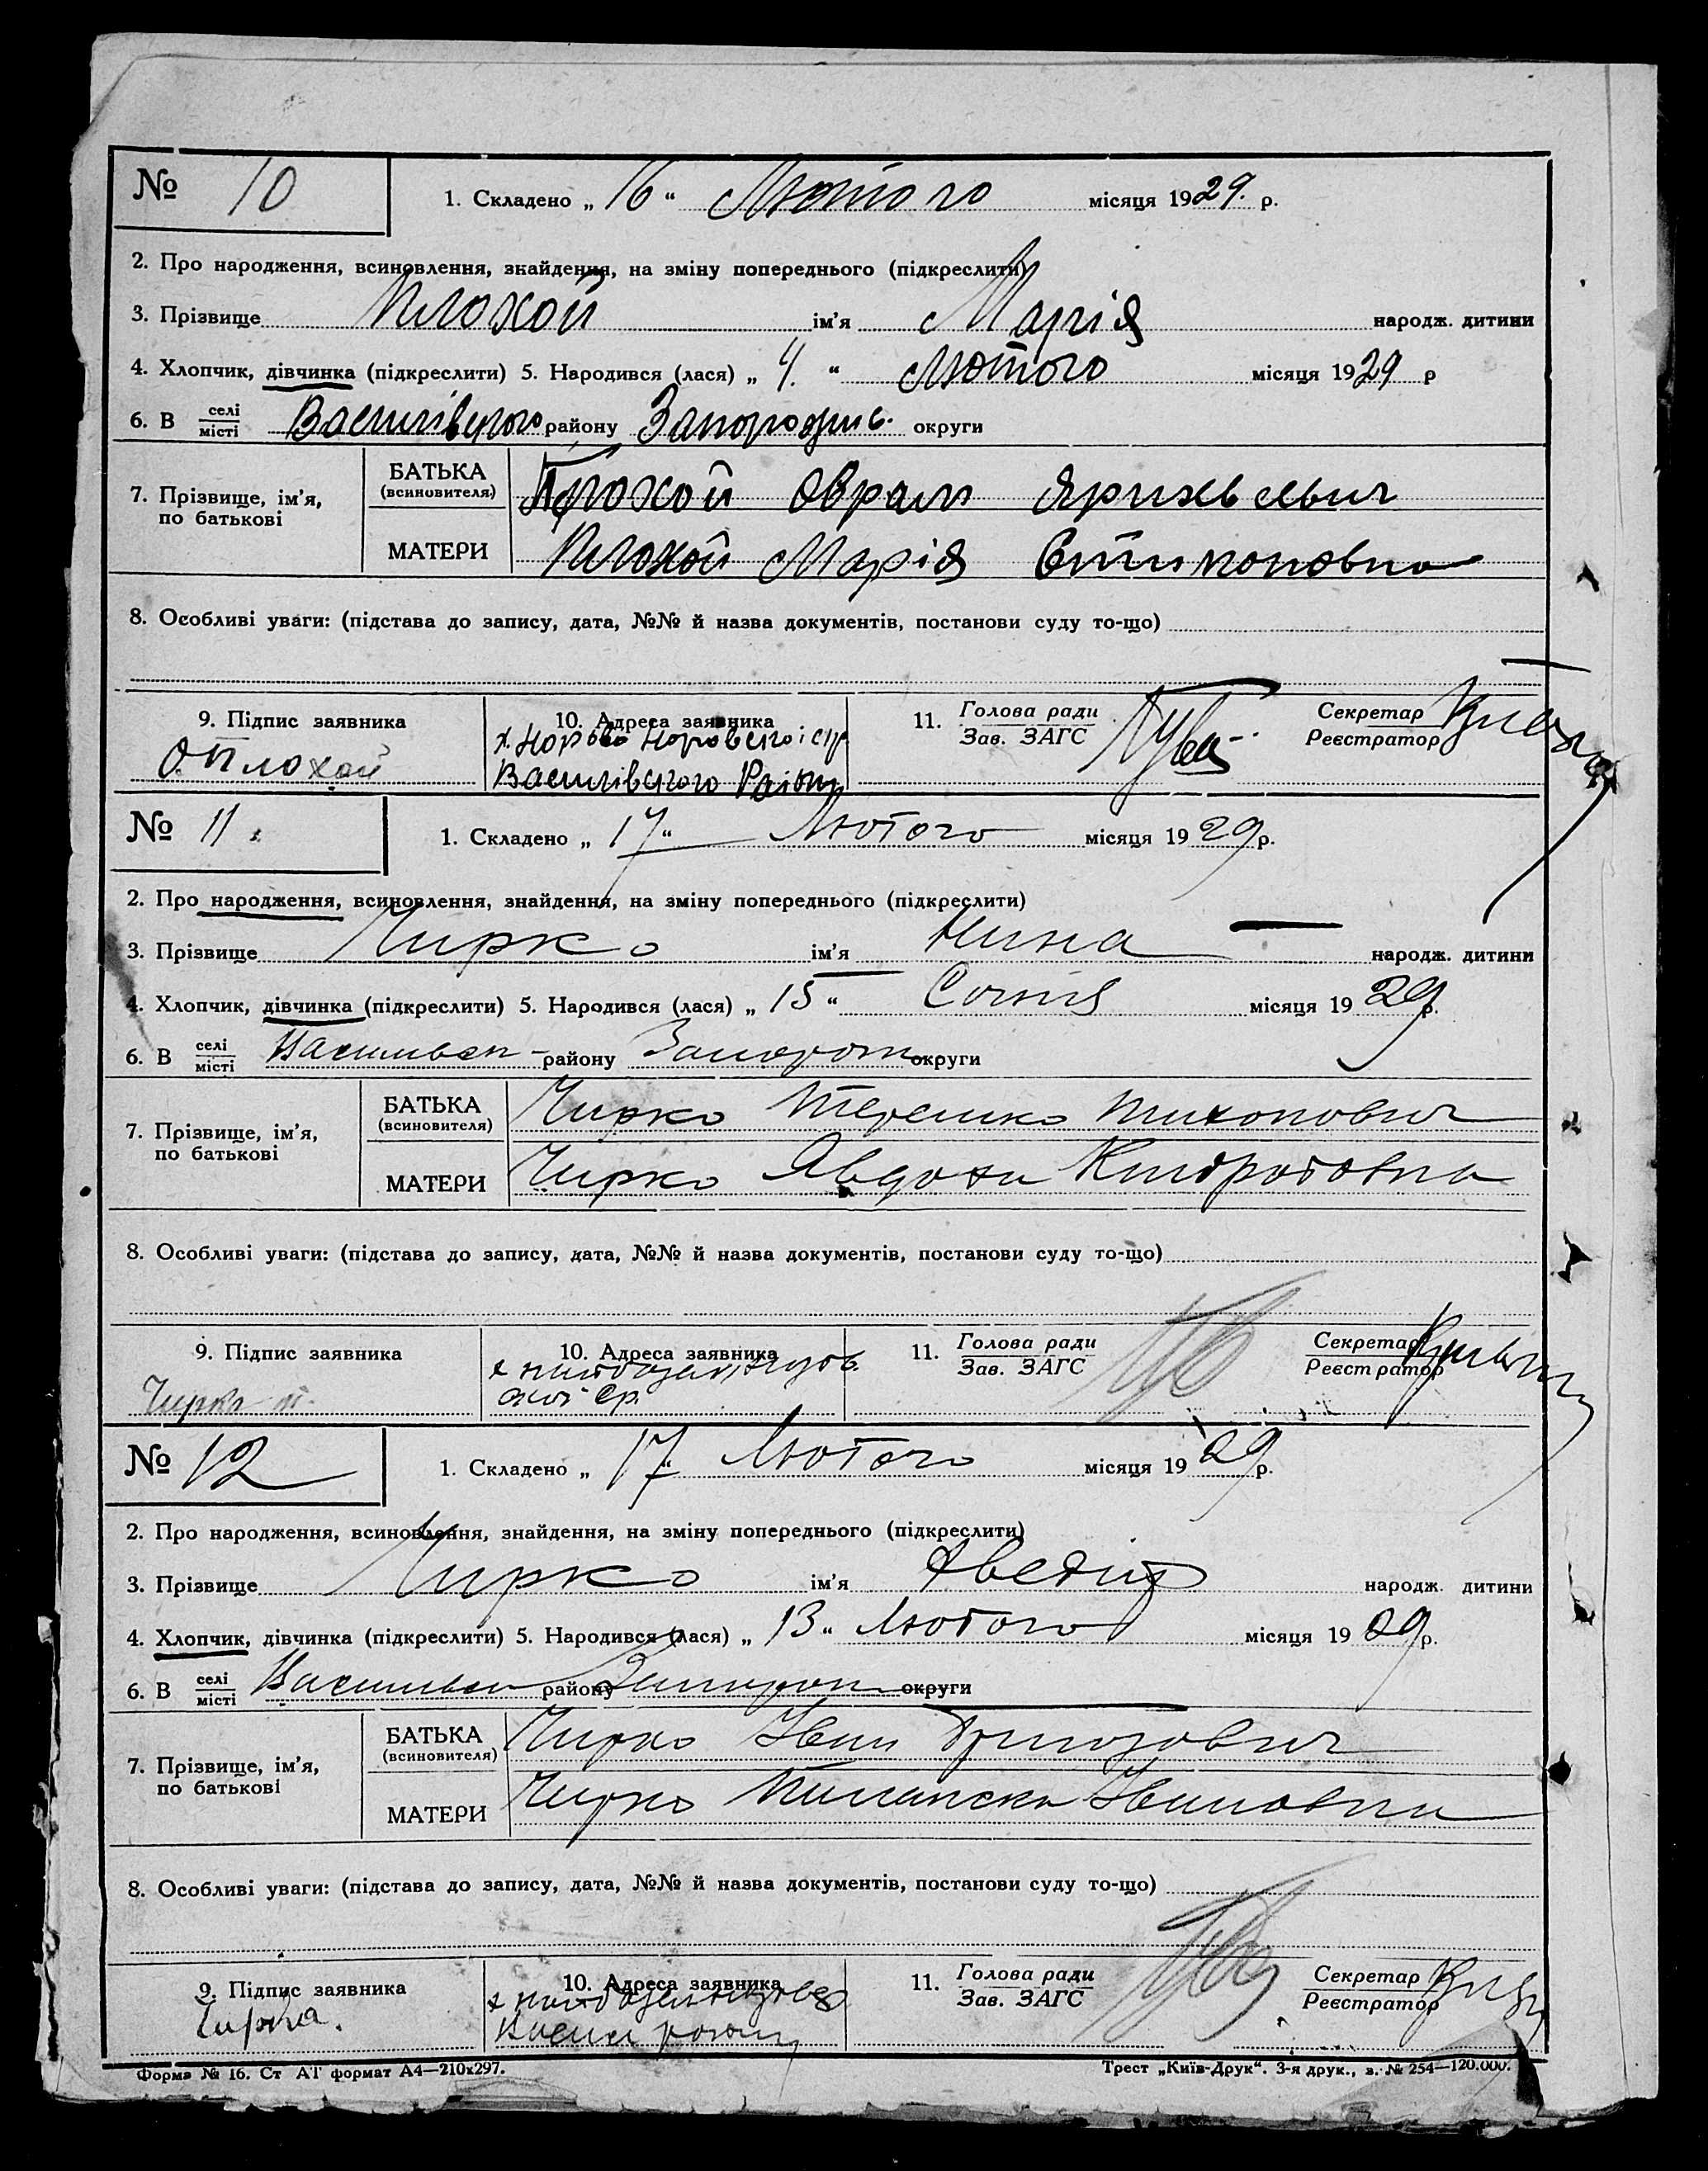 № 10
1. Складено „ 16 “ Лютого місяця 1929. р.
2. Про народження, всиновлення, знайдення, на зміну попереднього (підкреслити)
3. Прізвище Плохой ім’я Марія народж. дитини
4. Хлопчик, дівчинка (підкреслити) 5. Народився (лася) „ 4. “ Лютого місяця 1929 р
6. В селі місті Василівського району Запорожжс. округи
7. Прізвище, ім’я, по батькові
БАТЬКА (всиновителя) Плохой Оврам
МАТЕРИ Плохой Марія
8. Особливі уваги: (підстава до запису, дата, №№ й назва документів, постанови суду то-що)
9. Підпис заявника
10. Адреса заявника
11. Голова ради Зав. ЗАГС
Секретар Реєстратор
О. Плохой
Василівського Району
№ 11.
1. Складено „ 17 “ Лютого місяця 1929 р.
2. Про народження, всиновлення, знайдення, на зміну попереднього (підкреслити)
3. Прізвище Чирко ім’я Нина народж. дитини
4. Хлопчик, дівчинка (підкреслити) 5. Народився (лася) „ 15 “ Січня місяця 1929 р.
6. В селі місті Васильвск району Запорож округи
7. Прізвище, ім’я, по батькові
БАТЬКА (всиновителя) Чирко Терешко Тихонович
МАТЕРИ Чирко Явдоха Кіндратовна
8. Особливі уваги: (підстава до запису, дата, №№ й назва документів, постанови суду то-що)
9. Підпис заявника
10. Адреса заявника
11. Голова ради Зав. ЗАГС
Секретар Реєстратор
Чирко Т.
№ 12
1. Складено „ 17 “ Лютого місяця 1929 р.
2. Про народження, всиновлення, знайдення, на зміну попереднього (підкреслити)
3. Прізвище Чирко ім’я народж. дитини
4. Хлопчик, дівчинка (підкреслити) 5. Народився (лася) „ 13 “ Лютого місяця 1929 р.
6. В селі місті Васильвск району Запорож округи
7. Прізвище, ім’я, по батькові
БАТЬКА (всиновителя) Чирко Іван Григорович
МАТЕРИ Чирко Ивановна
8. Особливі уваги: (підстава до запису, дата, №№ й назва документів, постанови суду то-що)
9. Підпис заявника
10. Адреса заявника
11. Голова ради Зав. ЗАГС
Секретар Реєстратор
Чирка.
Форма № 16. Ст АТ формат А4—210х297.
Трест „Київ-Друк“. 3-я друк., з. № 254—120.000.